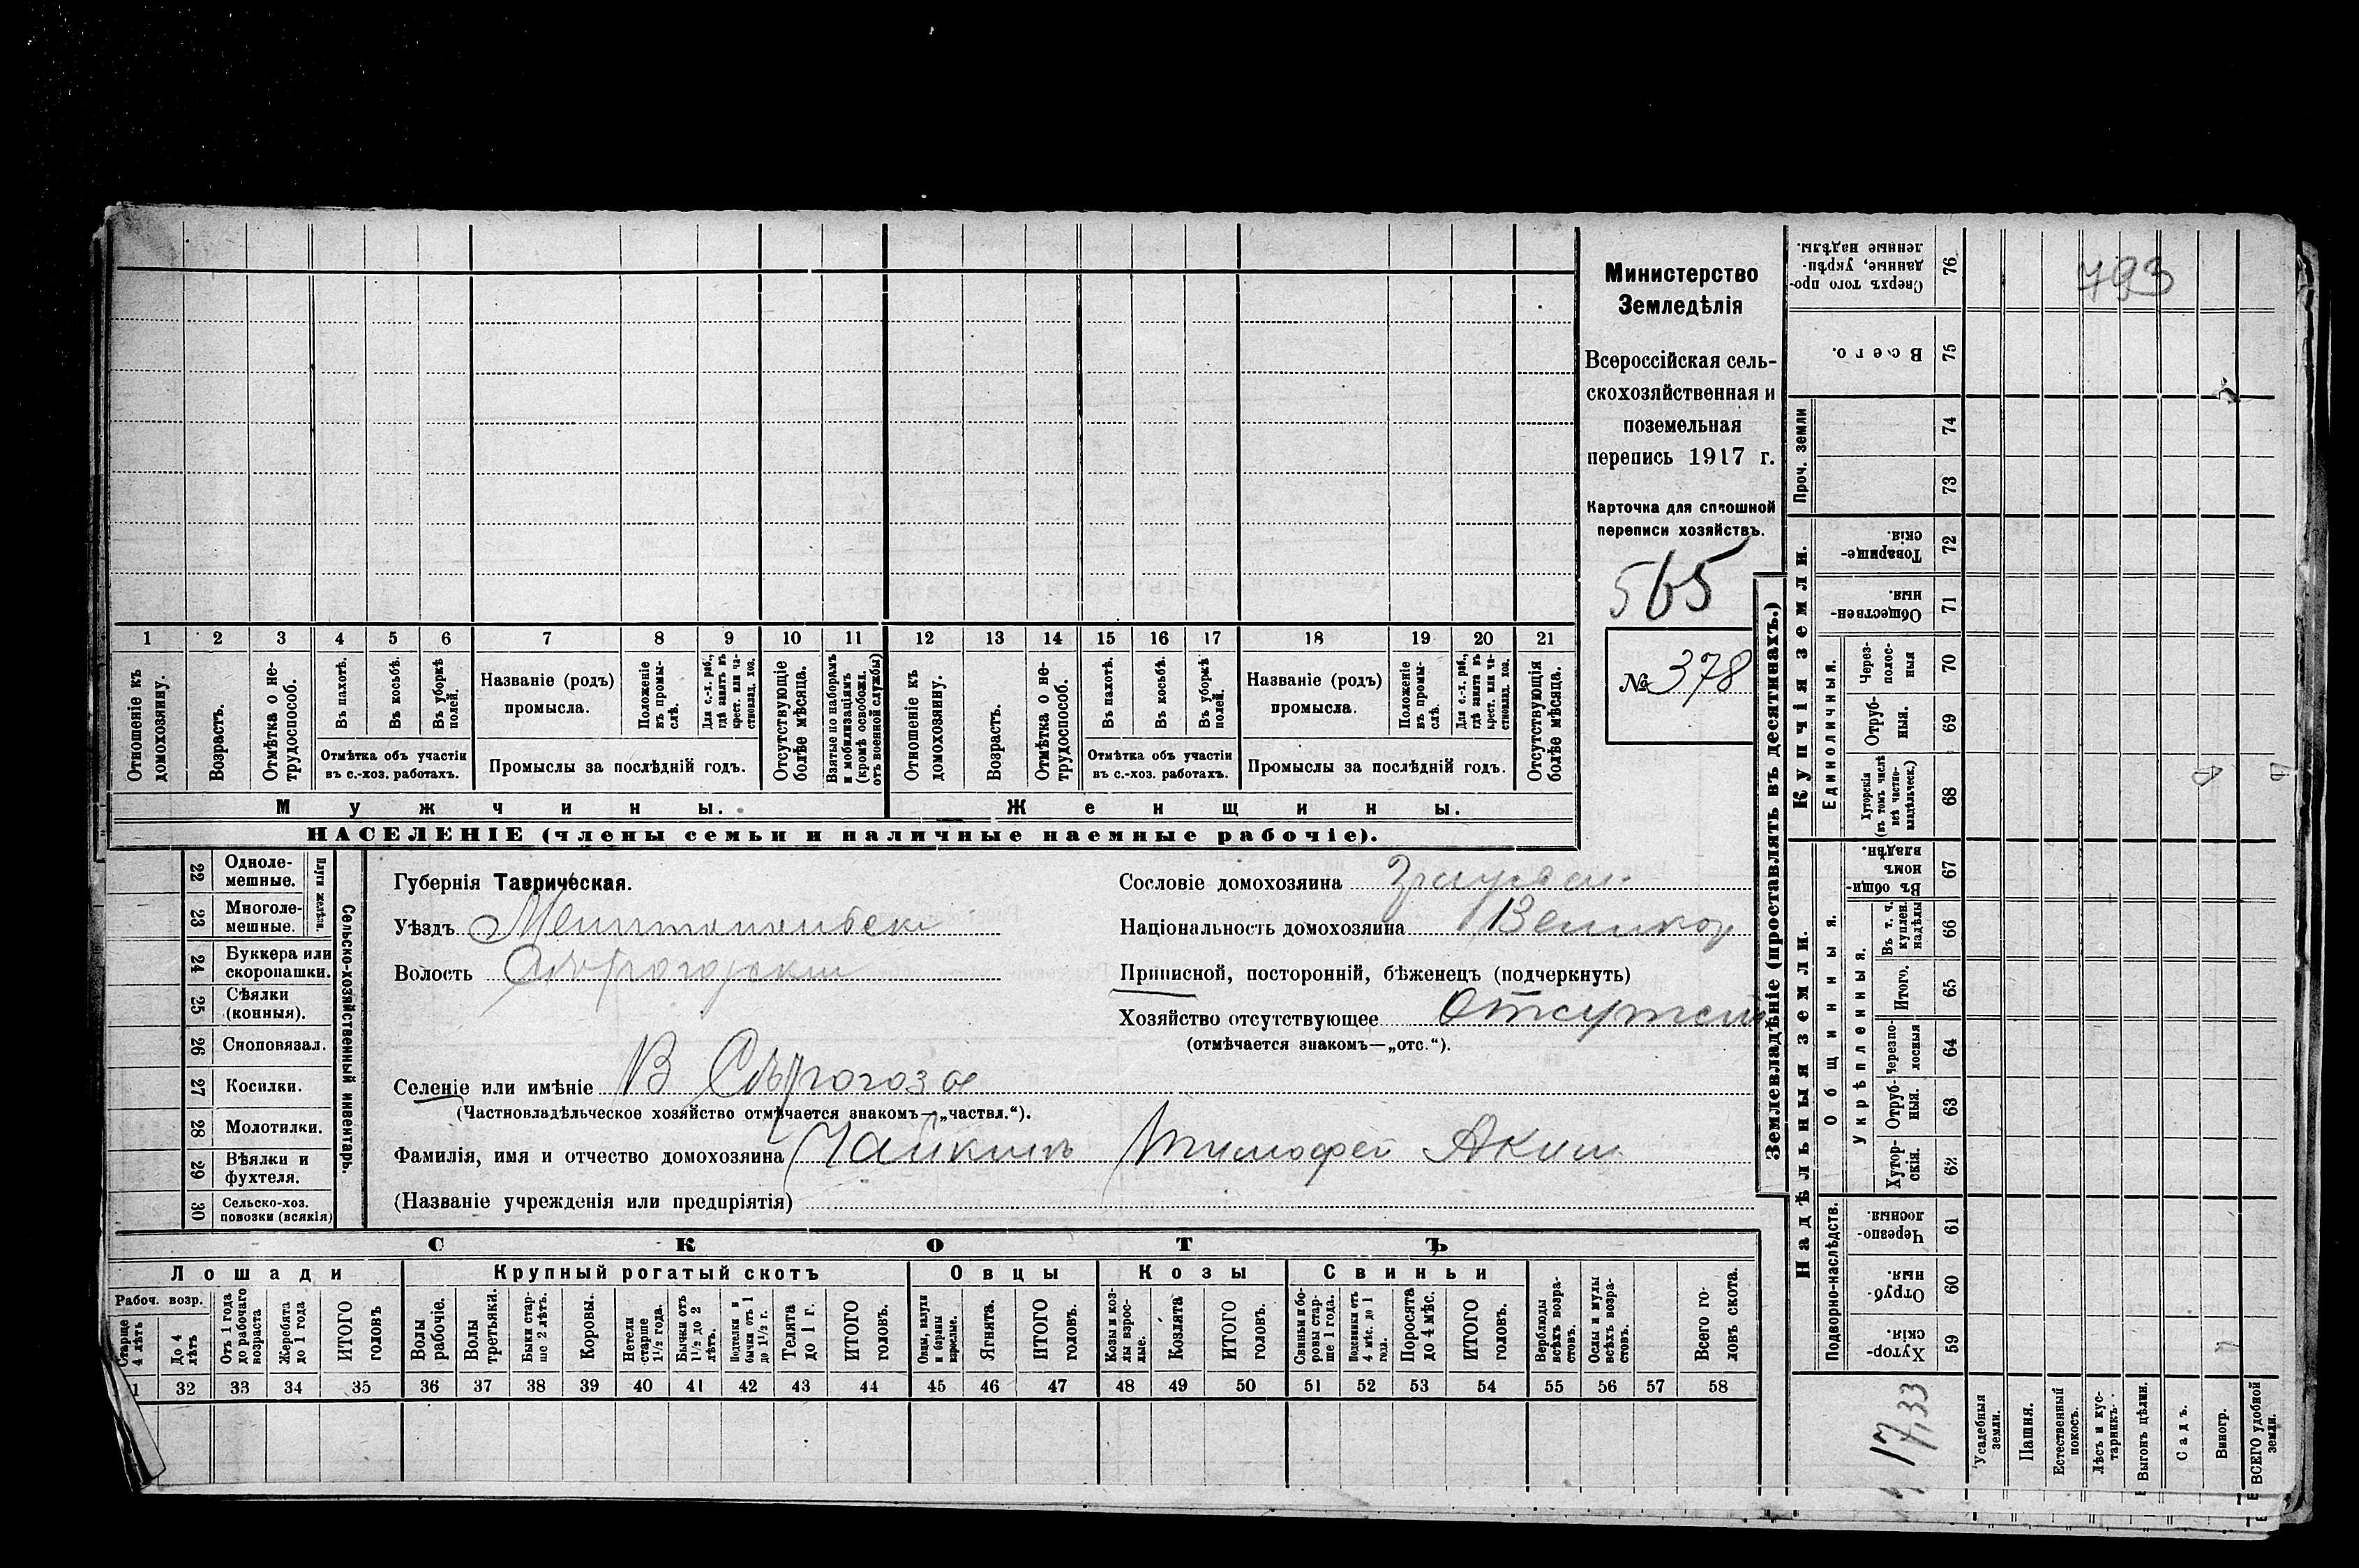 Министерство
Земледѣлія
Всероссійская сель-
скохозяйственная и
поземельная
перепись 1917 г.
Карточка для сплошной
переписи хозяйствъ.
565
№ 378
1 2 3 4 5 6 7 8 9 10 11 12 13 14 15 16 17 18 19 20 21
Отношеніе къ домохозяину.
Возрастъ.
Отмѣтка о не-трудоспособ.
Въ пахотѣ.
Въ косьбѣ.
Въ уборкѣ полей.
Отмѣтка объ участіи
въ с.-хоз. работахъ.
Названіе (родъ)
промысла.
Положеніе въ промы-слѣ.
Для с.-х. раб., гдѣ занятъ въ крест. или ча-стновлад. хоз.
Промыслы за послѣдній годъ.
Отсутствующіе болѣе мѣсяца.
Взятые по наборамъ и мобилизаціямъ (кромѣ освобожд. отъ военной службы)
Отношеніе къ домохозяину.
Возрастъ.
Отмѣтка о не-трудоспособ.
Въ пахотѣ.
Въ косьбѣ.
Въ уборкѣ полей.
Отмѣтка объ участіи
въ с.-хоз. работахъ.
Названіе (родъ)
промысла.
Положеніе въ промы-слѣ.
Для с.-х. раб., гдѣ занята въ крест. или ча-стновлад. хоз.
Промыслы за послѣдній годъ.
Отсутствующія болѣе мѣсяца.
Мужчины.
Женщины.
НАСЕЛЕНІЕ (члены семьи и наличные наемные рабочіе).
Сельско-хозяйственный инвентарь.
Плуги желѣзн.
22 Одноле-мешные.
23 Многоле-мешные.
24 Буккера или скоропашки.
25 Сѣялки (конныя).
26 Сноповязал.
27 Косилки.
28 Молотилки.
29 Вѣялки и фухтеля.
30 Сельско-хоз. повозки (всякія)
Губернія Таврическая.
Уѣздъ
Волость
Сословіе домохозяина
Національность домохозяина Великор
Приписной, посторонній, бѣженецъ (подчеркнуть)
Хозяйство отсутствующее Отсутст
(отмѣчается знакомъ—„отс.“).
Селеніе или имѣніе В Сѣрогозы
(Частновладѣльческое хозяйство отмѣчается знакомъ—„частвл.“).
Фамилія, имя и отчество домохозяина Чайкинъ Тимофей Аким
(Названіе учрежденія или предпріятія)
СКОТЪ
Лошади
Крупный рогатый скотъ
Овцы
Козы
Свиньи
Рабоч. возр.
Старше 4 лѣтъ
До 4 лѣтъ
Отъ 1 года до рабочаго возраста
Жеребята до 1 года
ИТОГО головъ
Волы рабочіе.
Волы третьяки.
Быки стар-ше 2 лѣтъ.
Коровы.
Нетели старше 1½ года.
Бычки отъ 1½ до 2 лѣтъ.
Подтелки и бычки отъ 1 до 1½ г.
Телята до 1 г.
ИТОГО головъ.
Овцы, валухи и бараны взрослые.
Ягнята.
ИТОГО головъ.
Козы и коз-лы взрос-лые.
Козлята
ИТОГО головъ.
Свиньи и бо-ровы стар-ше 1 года.
Подсвинки отъ 4 мѣс. до 1 года.
Поросята до 4 мѣс.
ИТОГО головъ.
Верблюды всѣхъ возра-стовъ.
Ослы и мулы всѣхъ возра-стовъ.
Всего го-ловъ скота.
1 32 33 34 35 36 37 38 39 40 41 42 43 44 45 46 47 48 49 50 51 52 53 54 55 56 57 58
Землевладѣніе (проставлять въ десятинахъ.)
Надѣльныя земли.
Купчія земли.
Проч. земли
Подворно-наслѣдств.
Общинныя.
Укрѣпленныя.
Единоличныя.
Сверхъ того про-данные, укрѣп-ленные надѣлы. 76
793
Всего. 75
74
73
Товарище-скія. 72
Обществен-ныя. 71
Через-полос-ныя 70
Отруб-ныя. 69
Хуторскія (въ томъ числѣ всѣ частно-владѣльческ.) 68
Въ общин-номъ владѣн. 67
Въ т. ч. куплен. надѣлы 66
Итого. 65
Черезпо-лосныя 64
Отруб-ныя. 63
Хутор-скія. 62
Черезпо-лосныя. 61
Отруб-ныя. 60
Хутор-скія. 59
17,33
Усадебныя земли.
Пашня.
Естественный покосъ.
Лѣсъ и кус-тарникъ.
Выгонъ цѣлин.
Садъ.
Виногр.
ВСЕГО удобной земли.